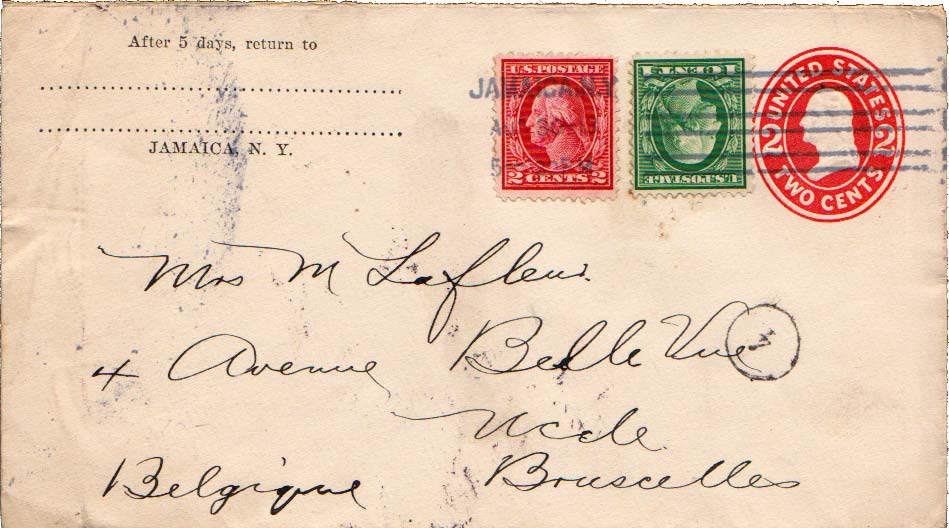 After 5 days, return to
JAMAICA, N. Y.
U.S. POSTAGE
2 CENTS 2
1 CENTS 1
U.S. POSTAGE
UNITED STATES
2 2
TWO CENTS
JAMAICA, N.Y.
Mrs M Lafleur
4 Avenue Belle Vue
Uccle
Belgique Bruscelles